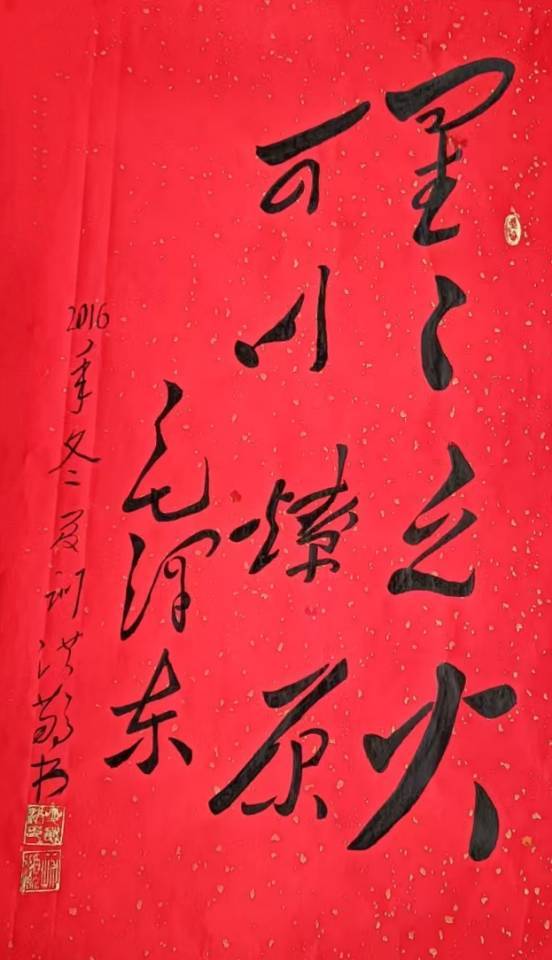 星星之火
可以燎原
毛泽东
2016年冬 夏训洪敬书